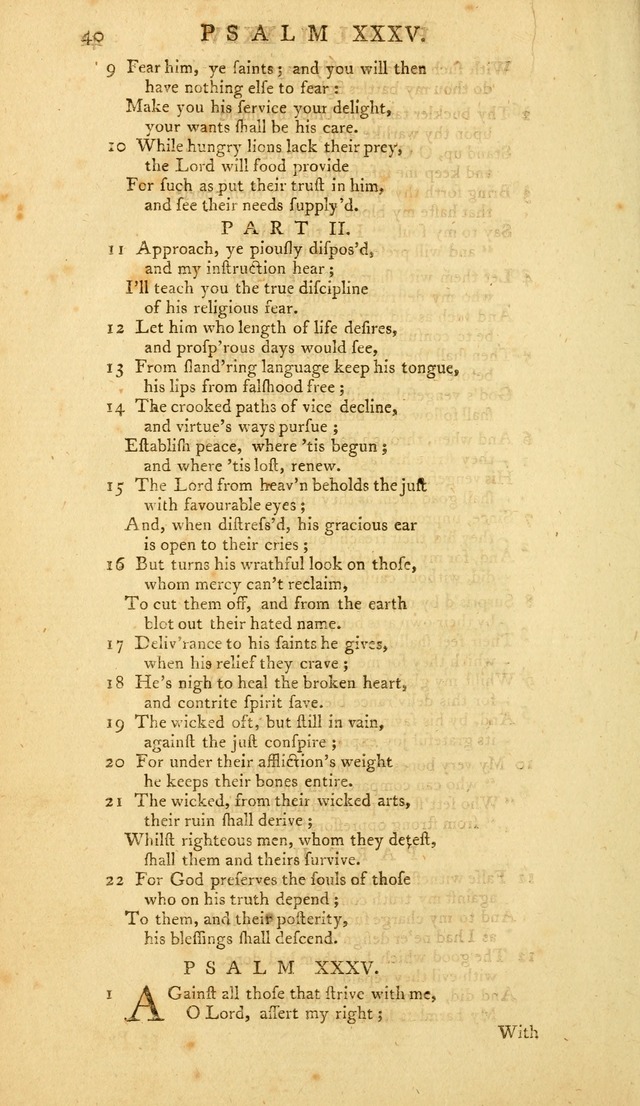 40 PSALM XXXV.
9 Fear him, ye ſaints; and you will then
have nothing elſe to fear:
Make you his ſervice your delight,
your wants ſhall be his care.
10 While hungry lions lack their prey,
the Lord will food provide
For ſuch as put their truſt in him,
and ſee their needs ſupply'd.
PART II.
11 Approach, ye piouſly diſpos'd,
and my inſtruction hear;
I'll teach you the true diſcipline
of his religious fear.
12 Let him who length of life deſires,
and proſp'rous days would ſee,
13 From ſland'ring language keep his tongue,
his lips from falſhood free;
14 The crooked paths of vice decline,
and virtue's ways purſue;
Eſtabliſh peace, where 'tis begun;
and where 'tis loſt, renew.
15 The Lord from heav'n beholds the juſt
with favourable eyes;
And, when diſtreſs'd, his gracious ear
is open to their cries;
16 But turns his wrathful look on thoſe,
whom mercy can't reclaim,
To cut them off, and from the earth
blot out their hated name.
17 Deliv'rance to his ſaints he gives,
when his relief they crave;
18 He's nigh to heal the broken heart,
and contrite ſpirit ſave.
19 The wicked oft, but ſtill in vain,
againſt the juſt conſpire;
20 For under their affliction's weight
he keeps their bones entire.
21 The wicked, from their wicked arts,
their ruin ſhall derive;
Whilſt righteous men, whom they deteſt,
ſhall them and theirs ſurvive.
22 For God preſerves the ſouls of thoſe
who on his truth depend;
To them, and their poſterity,
his bleſſings ſhall deſcend.
PSALM XXXV.
1 AGainſt all thoſe that ſtrive with me,
O Lord, aſſert my right;
With